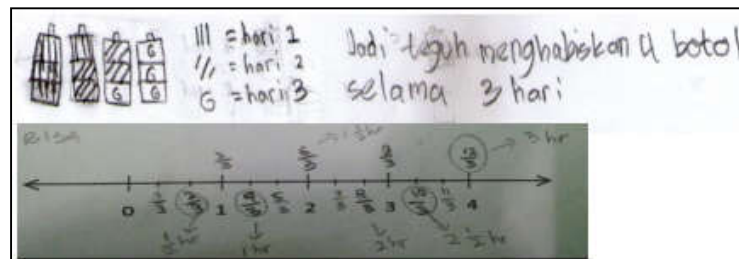 G
G
G G
||| = hari 1
/// = hari 2
G = hari 3
Jadi teguh menghabiskan 4 botol
selama 3 hari
BISA
→ 1 1/2 hr
3/3 6/3 12/3 → 3 hr
0 1/3 2/3 1 4/3 5/3 2 7/3 8/3 3 10/3 11/3 4
1/2 hr 1 hr 2 hr 2 1/2 hr